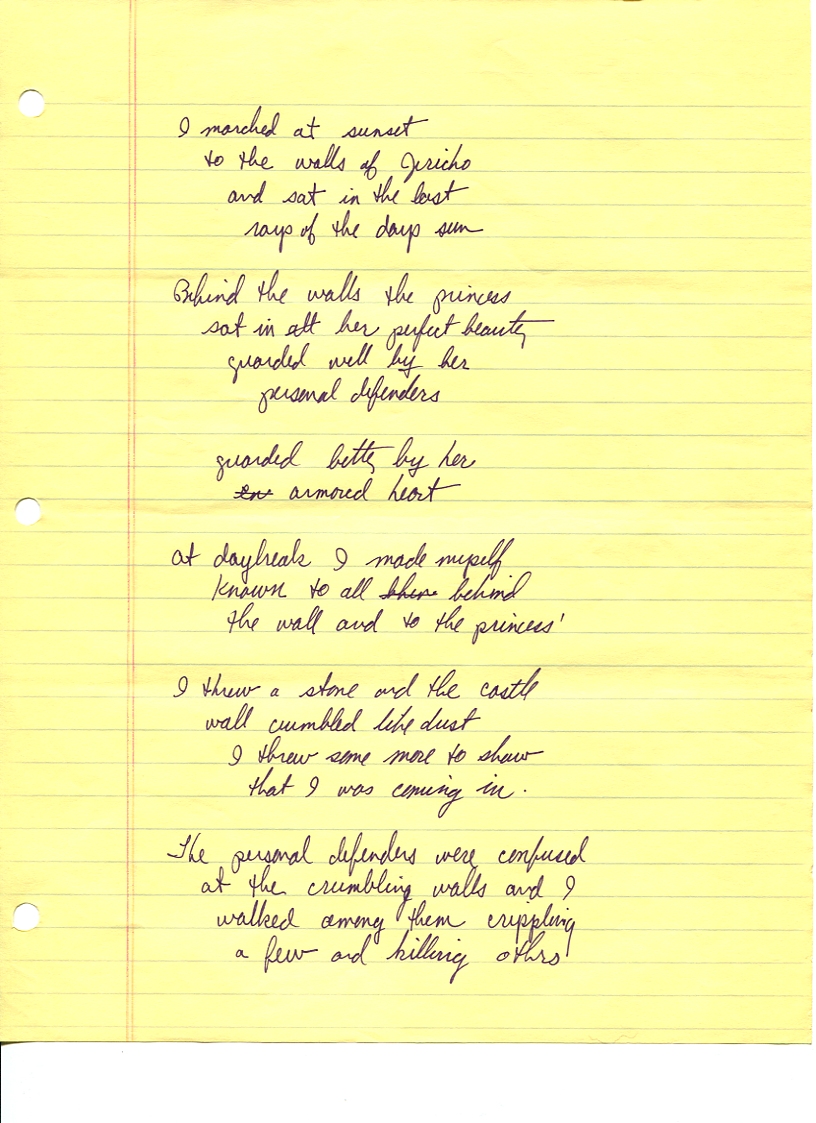 I marched at sunset
to the walls of Jericho
and sat in the last
rays of the days sun
Behind the walls the princess
sat in all her perfect beauty
guarded well by her
personal defenders
guarded better by her
armored heart
at daybreak I made myself
known to all behind
the wall and to the princess'
I threw a stone and the castle
wall crumbled like dust
I threw some more to show
that I was coming in.
The personal defenders were confused
at the crumbling walls and I
walked among them crippling
a few and killing others